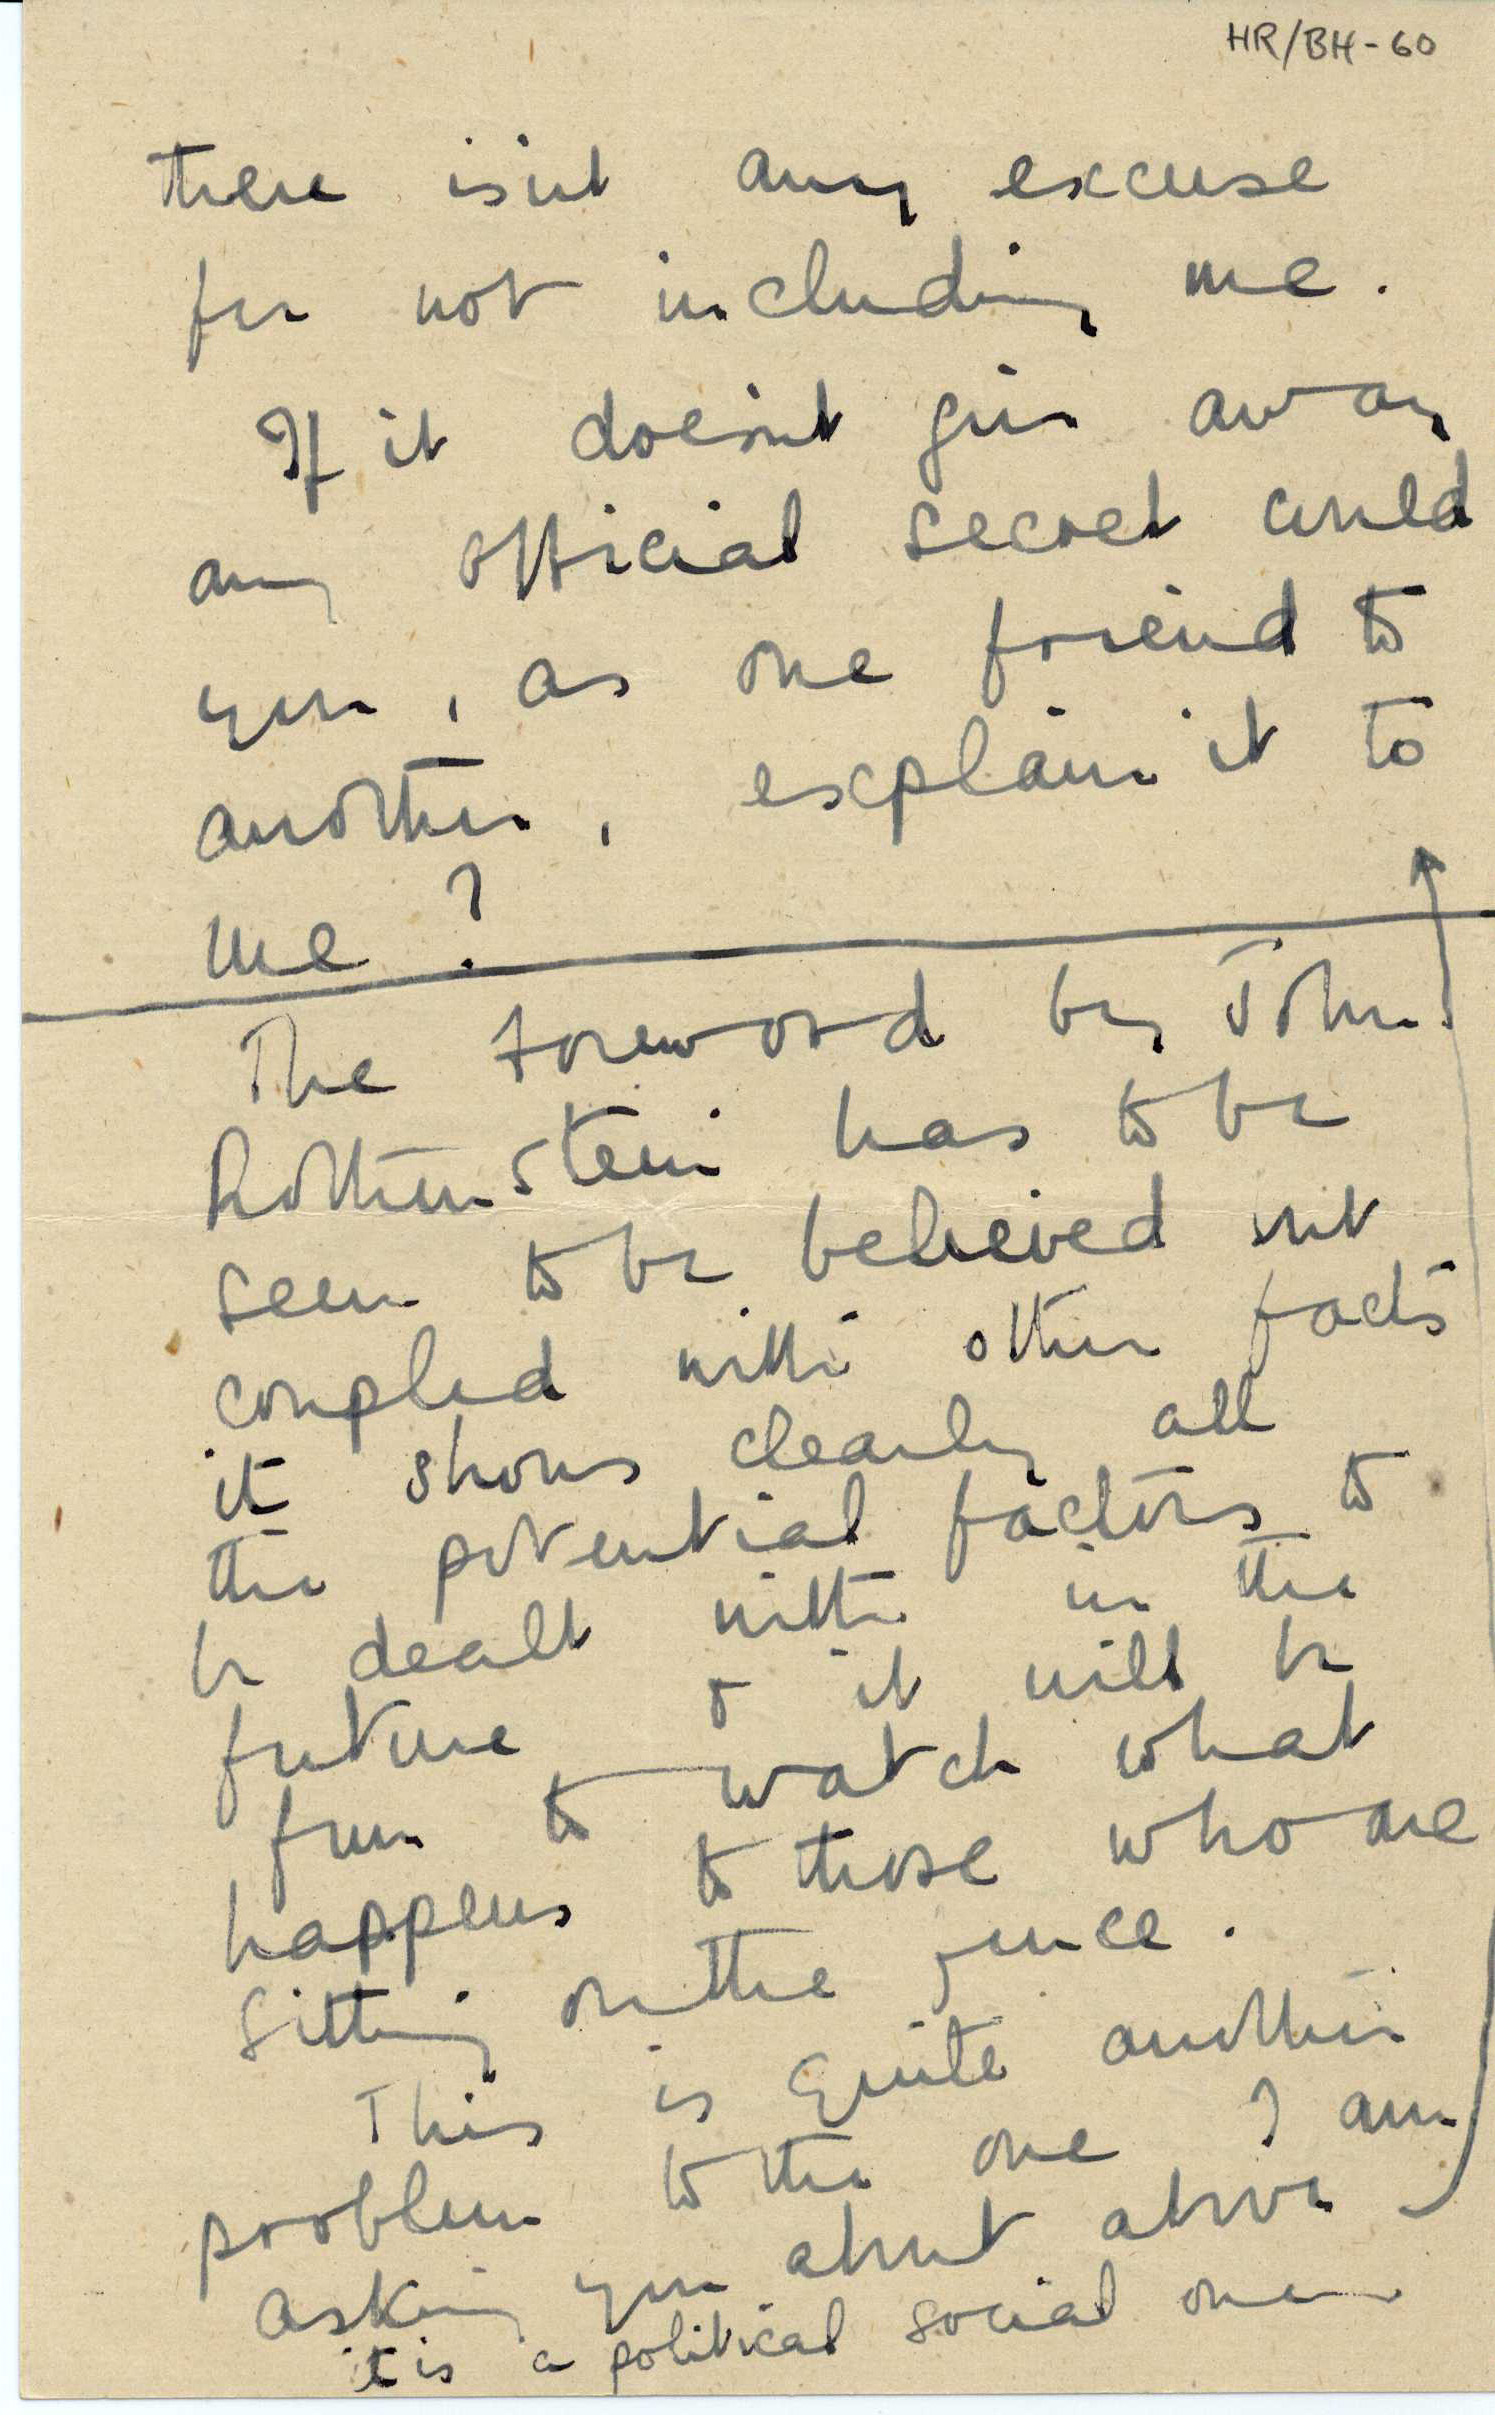 HR/BH-60
there isint any excuse
for not including me.
If it doesint give away
any official secret could
you, as one friend to
another, explain it to
me?
The foreword by John
Rothenstein has to be
seen to be believed but
coupled with other facts
it shows clearly all
the potential factors to
be dealt with in the
future & it will be
fun to watch what
happens to those who are
sitting on the fence.
This is quite another
problem to the one I am
asking you about above
it is a political social one